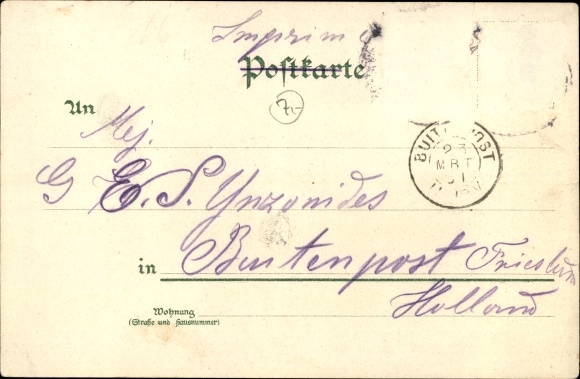 Imprimé
Postkarte
7,-
An
Mej.
G E. S. Ynzonides
BUITENPOST
23
MRT
01
in Buitenpost Friesland
Holland
Wohnung
(Straße und Hausnummer)